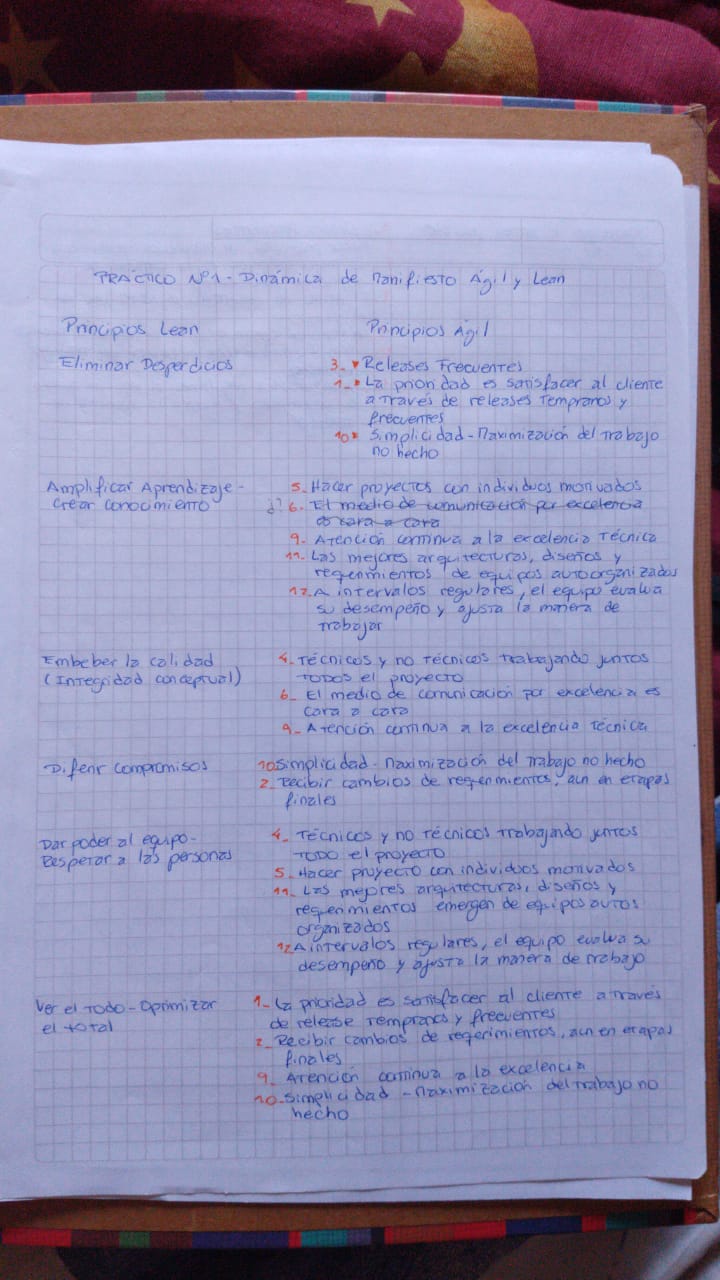 PRÁCTICO Nº1 - Dinámica de Manifiesto Ágil y Lean
Principios Lean
Principios Agil
Eliminar Desperdicios
3. Releases Frecuentes
1. La prioridad es satisfacer al cliente
a Través de releases Tempranos y
frecuentes
10 Simplicidad - Maximización del Trabajo
no hecho
Amplificar Aprendizaje -
Crear conocimiento
5. Hacer proyectos con individuos motivados
¿? 6. El medio de comunicación por excelencia
es cara a cara
9. Atención continua a la excelencia Técnica
11. Las mejores arquitecturas, diseños y
requerimientos de equipos autoorganizados
12. A intervalos regulares, el equipo evalua
su desempeño y ajusta la manera de
Trabajar
Embeber la calidad
(Integridad conceptual)
4. Técnicos y no Técnicos trabajando juntos
TODOS el proyecto
6. El medio de comunicación por excelencia es
cara a cara
9. Atención continua a la excelencia Técnica
Diferir compromisos
10. Simplicidad - Maximización del Trabajo no hecho
2. Recibir cambios de requerimientos, aun en etapas
finales
Dar poder al equipo -
Respetar a las personas
4. Técnicos y no Técnicos Trabajando juntos
TODO el proyecto
5. Hacer proyecto con individuos motivados
11. Las mejores arquitecturas, diseños y
requerimientos emergen de equipos autos
organizados
12. A intervalos regulares, el equipo evalua su
desempeño y ajusta la manera de trabajo
Ver el Todo - Optimizar
el total
1. La prioridad es satisfacer al cliente a través
de release Tempranos y frecuentes
2. Recibir cambios de regerimientos, aun en etapas
finales
9. Atención continua a la excelencia
10. Simplicidad - Maximización del Trabajo no
hecho